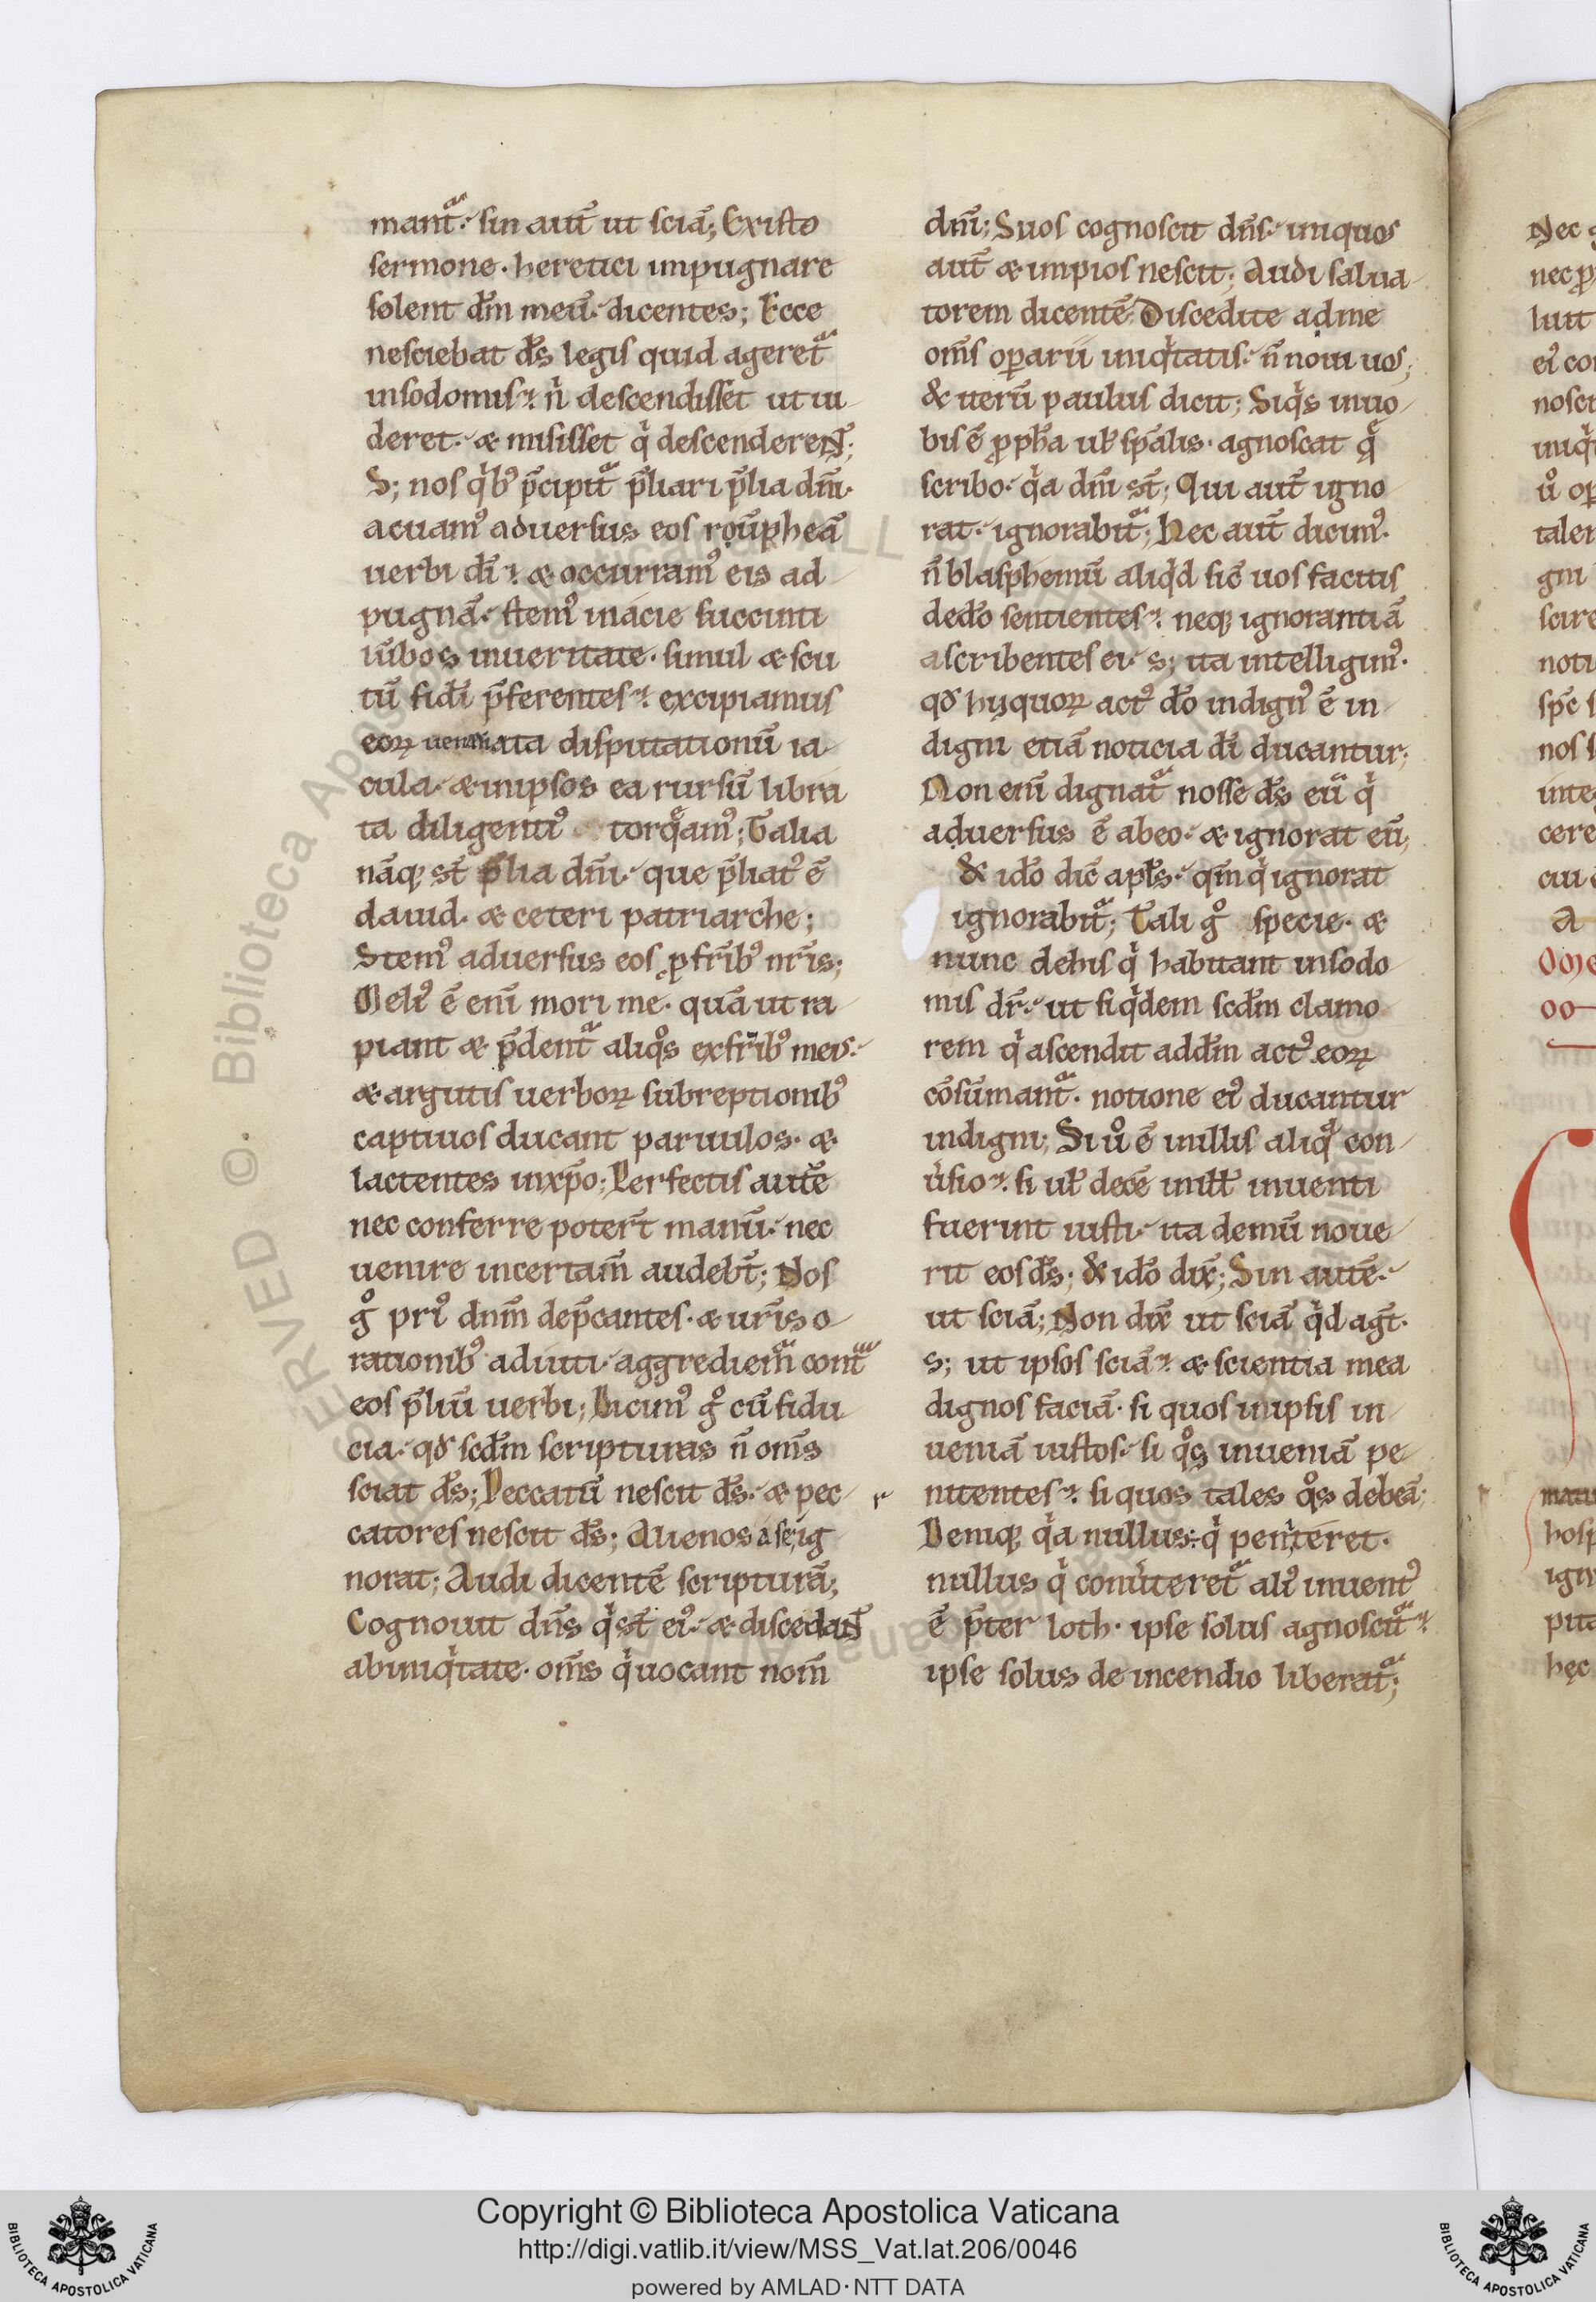 mant᷑· sin aut̄ ut sciā; Ex isto
sermone· heretici impugnare
solent dm̄ meū· dicentes; Ecce
nesciebat ds̄ legis quid ageret᷑
in sodomis· n̄ descendisset ut ui
deret· & misisset qͥ descenderent;
S; nos qͥbꝰ p̄cipit᷑ p̄liari p̄lia dn̄i·
acuamꝰ aduersus eos roūpheā
uerbi dī· & occurramꝰ eis ad
pugnā· stemꝰ in acie succinti
lūbos in ueritate· simul & scu
tū fidei p̄ferentes· excipiamus
eoꝝ uenenata disputationū ia
cula· & in ipsos ea rursū libra
ta diligentiꝰ torqᷓamꝰ; Talia
nāq; st̄ p̄lia dn̄i· que p̄liatꝰ ē
dauid· & ceteri patriarche;
Stemꝰ aduersus eos ꝓ fr̄ibꝰ nr̄is;
Meliꝰ ē enī mori me· quā ut ra
piant & p̄dent᷑ aliqͦs ex fr̄ibꝰ meis·
& argutis uerboꝝ subreptionibꝰ
captiuos ducant paruulos· &
lactentes in xp̄o; Perfectis autē
nec conferre potert̄ manū· nec
uenire in certam̄ audebt̄; Nos
gͦ priꝰ dnm̄ dep̄cantes· & ur̄is o
rationibꝰ adiuti· aggrediem᷑ cont᷑
eos p̄liū uerbi; Dicimꝰ gͦ cū fidu
cia· qđ scdm̄ scripturas n̄ om̄s
sciat ds̄; Peccatū nescit ds̄· & pec
catores nescit ds̄; Alienos a se, ig
norat; Audi dicentē scripturā;
Cognouit dn̄s qͥ st̄ eiꝰ· & discedant
ab iniqͥtate· om̄s qͥ uocant nom̄
dn̄i; Suos cognoscit dn̄s· iniquos
aut̄ & impios nescit; Audi salua
torem dicentē; Discedite a d me
om̄s oꝑarii iniqͥtatis· n̄ noui uos;
& iterū paulus dicit; Siqͥs in uo
bis ē ꝓph̄a ul̄ sp̄alis· agnoscat q̨ͣ
scribo· qͥa dn̄i st̄; Qui aut̄ igno
rat· ignorabit᷑; Hec aut̄ dicimꝰ·
n̄ blasphemū aliqͥd sic̄ uos facitis
de do sentientes· neq; ignorantiā
ascribentes ei· s; ita intelligimꝰ·
qđ hij quoꝝ actꝰ dō indignꝰ ē in
digni etiā noticia dī ducantur;
Non enī dignat᷑ nosse ds̄ eū qͥ
aduersus ē ab eo· & ignorat eū;
& idō dic̄ apl̄s· qm̄ qͥ ignorat
ignorabit᷑; Tali gͦ specie· &
nunc de his qͥ habitant in sodo
mis dr̄· ut siqͥdem scdm̄ clamo
rem qͥ ascendit ad dm̄ actꝰ eoꝝ
cōsūmant᷑· notione eiꝰ ducantur
indigni; Si uͦ ē in illis aliqᷓ con
uͥsio· si ul̄ decē in ill̄ inuenti
fuerint iusti· ita demū noue
rit eos ds̄; & idō dix̄; Sin autē·
ut sciā; Non dix̄ ut sciā qͥd agt̄·
s; ut ipsos sciā· & scientia mea
dignos faciā· si quos in ipsis in
ueniā iustos· si qͦs inueniā pe
nitentes· si quos tales qͦs debeā;
Deniq; qͥa nullus ÷ qͥ penͥteret·
nullus qͥ conuͥteret᷑ aliꝰ inuentꝰ
ē p̄ter loth· ipse solus agnoscit᷑·
ipse solus de incendio liberat᷑;
Copyright © Biblioteca Apostolica Vaticana
http://digi.vatlib.it/view/MSS_Vat.lat.206/0046
powered by AMLAD·NTT DATA